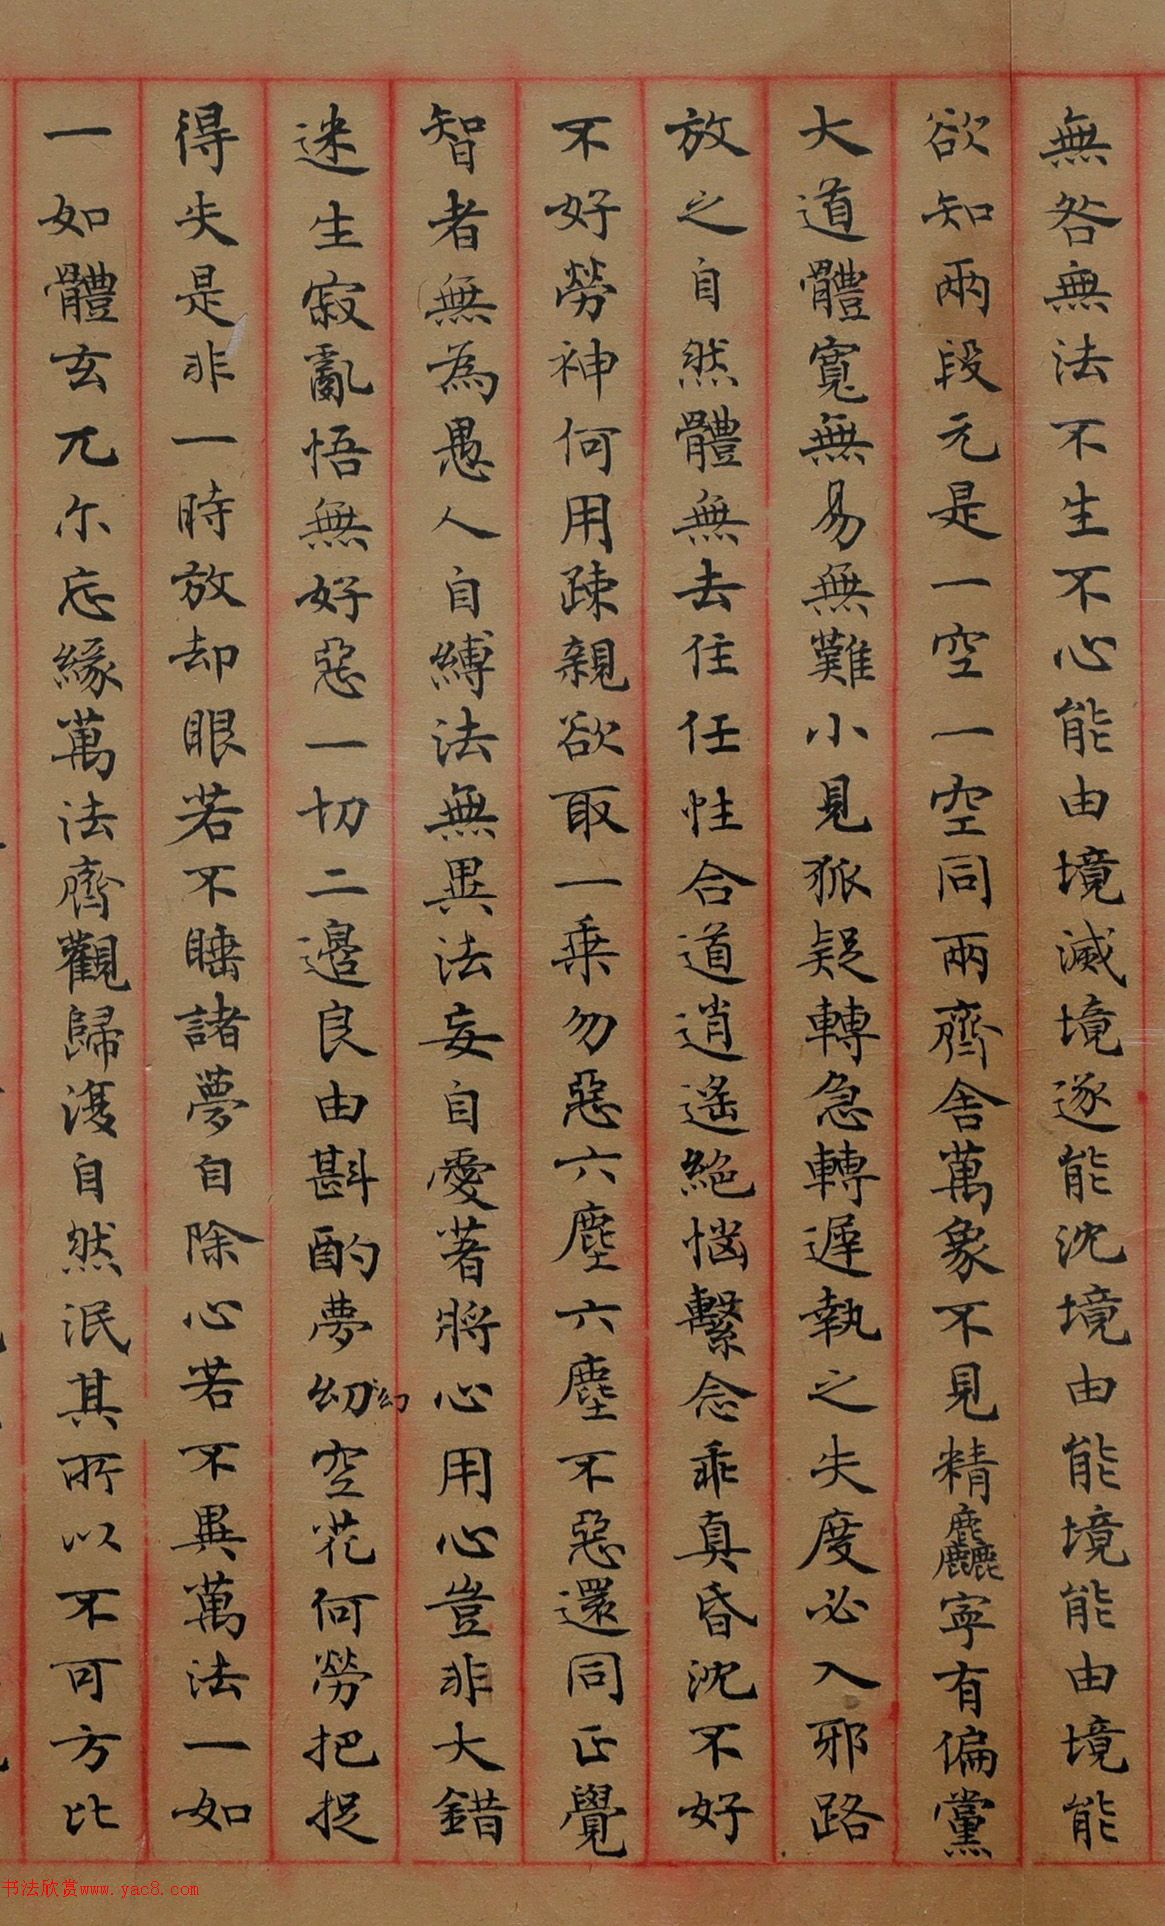 無咎無法不生不心能由境滅境逐能沈境由能境能由境能
欲知兩段元是一空一空同兩齊含萬象不見精麤寧有偏黨
大道體寬無易無難小見狐疑轉急轉遲執之失度必入邪路
放之自然體無去住任性合道逍遙絕惱繫念乖真昏沈不好
不好勞神何用疎親欲取一乘勿惡六塵六塵不惡還同正覺
智者無為愚人自縛法無異法妄自愛著將心用心豈非大錯
迷生寂亂悟無好惡一切二邊良由斟酌夢幻幻空花何勞把捉
得失是非一時放却眼若不睡諸夢自除心若不異萬法一如
一如體玄兀尔忘緣萬法齊觀歸復自然泯其所以不可方比
书法欣赏www.yac8.com